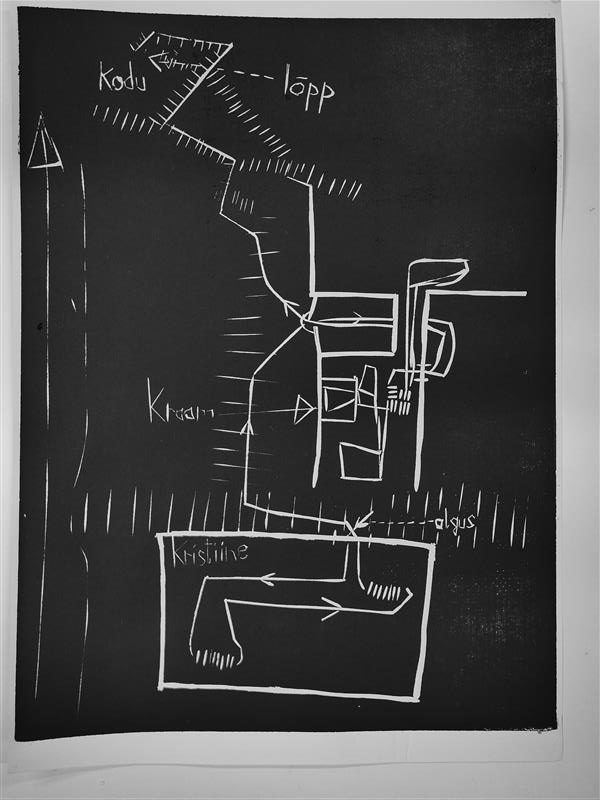 Kodu
lõpp
Kraam
algus
Kristiine